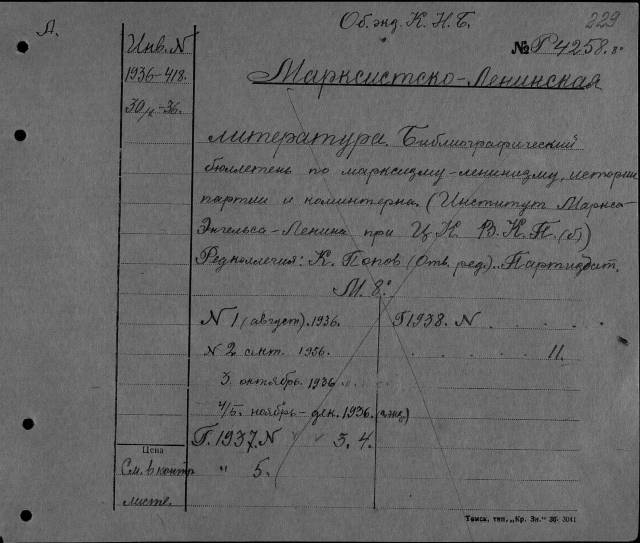 А.
Об. энд. К. Н. Б.
229
Инв. №
1936-418.
30/X-36.
№ Р4258. 8°
Марксистско-Ленинская
литература. Библиографический
бюллетень по марксизму-ленинизму, истории
партии и коминтерна. (Институт Маркса-
Энгельса-Ленина при Ц.К. В.К.П.(б)
Редколлегия: К. Попов (Отв. ред.). Партиздат.
М. 8°.
N 1 (август). 1936.
N 2 снт. 1936.
3. октябрь. 1936
4/5. ноябрь-дек. 1936.
Г. 1937. N 3. 4.
" 5.
Г. 1938. N
11.
Цена
См. в контр
листе.
Томск, тип. „Кр. Зн." Зб. 3041